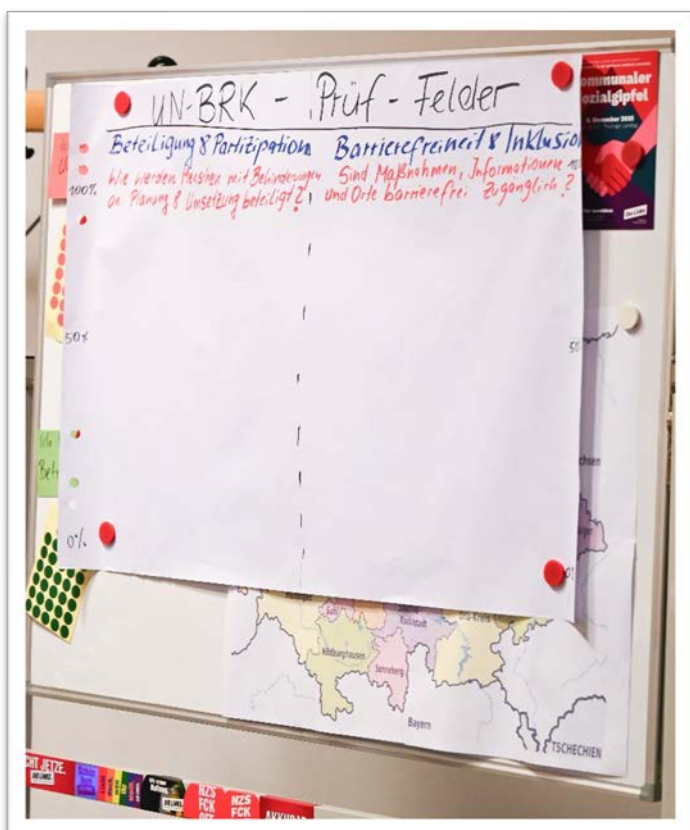 UN-BRK - Prüf-Felder
Beteiligung & Partizipation
Wie werden Menschen mit Behinderungen
an Planung & Umsetzung beteiligt?
Barrierefreiheit & Inklusio
Sind Maßnahmen, Informationen
und Orte barrierefrei zugänglich?
100%
50%
0%
10
50
0%
ommunaler
ozialgipfel
Die Linke
Ich
Betr
chsen
Hildburghausen
Sonneberg
Suhl
Rudolstadt
Orla-Kreis
Bayern
TSCHECHIEN
CHT JETZE.
DIE LINKE.
NZS
FCK
OFF
NZS
FCK